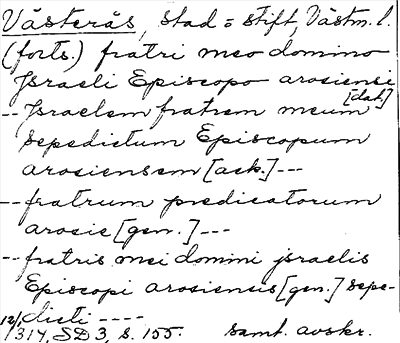 Västerås, stad = stift, Västm. l.
(forts.) fratri meo domino
Israeli Episcopo arosiensi
[dat.]
-- Israelem fratrem meum
sepedictum Episcopum
arosiensem [ack.] ---
-- fratrum predicatorum
arosie [gen.] ---
-- fratris mei domini jsraelis
Episcopi arosiensis [gen.] sepe-
dicti ----
12/1 1314, SD 3, s. 155. samt. avskr.